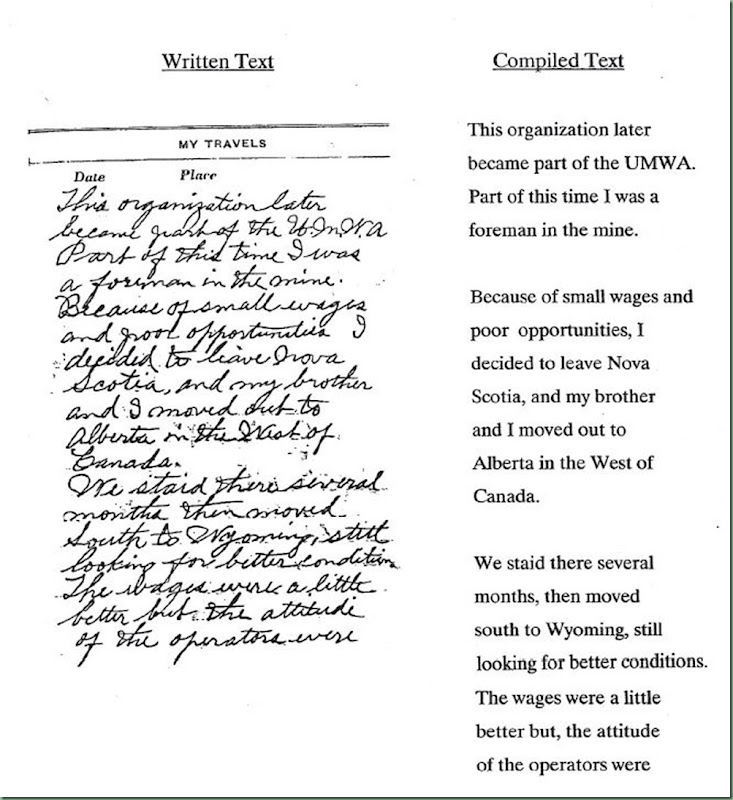 Written Text
MY TRAVELS
Date Place
This organization later
became part of the U.M.W.A
Part of this time I was
a foreman in the mine.
Because of small wages
and poor opportunities I
decided to leave Nova
Scotia, and my brother
and I moved out to
Alberta in the West of
Canada.
We staid there several
months then moved
South to Wyoming, still
looking for better condition
The wages were a little
better but the attitude
of the operators were
Compiled Text
This organization later
became part of the UMWA.
Part of this time I was a
foreman in the mine.
Because of small wages and
poor opportunities, I
decided to leave Nova
Scotia, and my brother
and I moved out to
Alberta in the West of
Canada.
We staid there several
months, then moved
south to Wyoming, still
looking for better conditions.
The wages were a little
better but, the attitude
of the operators were